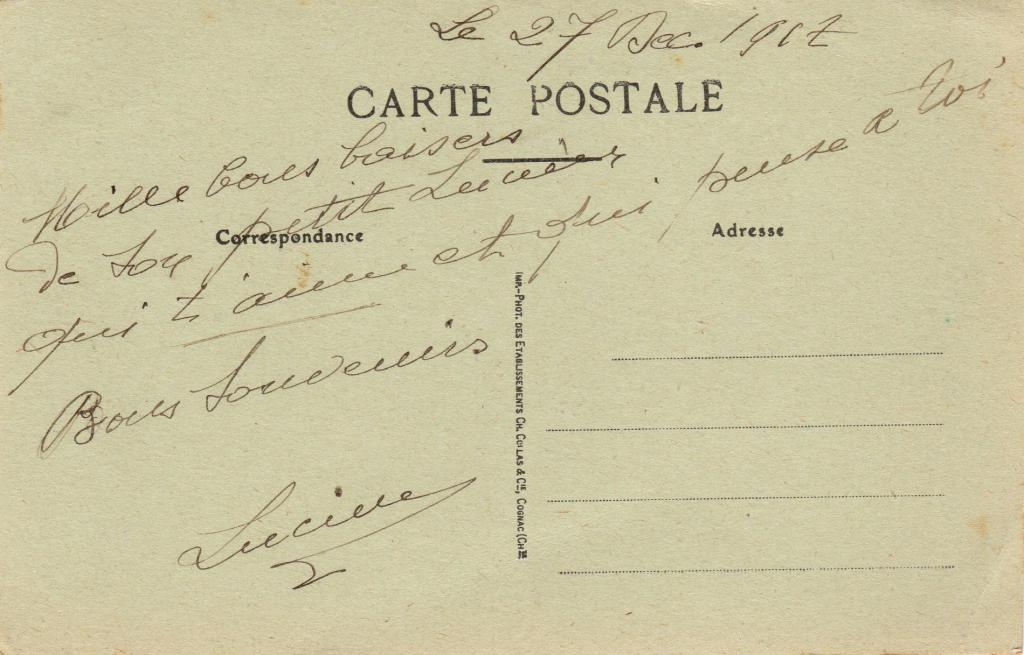 Le 27 Dec. 1917
CARTE POSTALE
Mille bons baisers
de ton petit Lucien
Correspondance
Adresse
qui t'aime et qui pense a toi
Bons Souvenirs
Lucien
IMP.-PHOT. DES ETABLISSEMENTS CH. COLLAS & CIE, COGNAC (CHTE